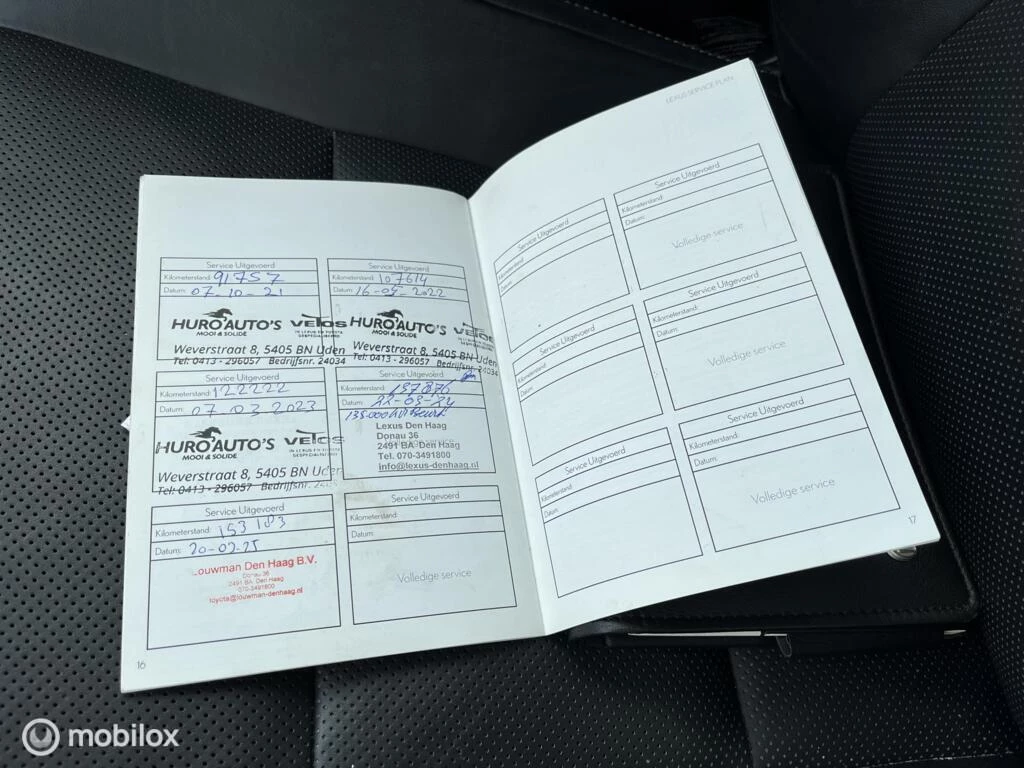 Service Uitgevoerd
Kilometerstand: 91757
Datum: 07-10-21
HURO AUTO'S
MOOI & SOLIDE
VETOS
IN LEXUS EN TOYOTA
GESPECIALISEERD
Weverstraat 8, 5405 BN Uden
Tel: 0413 - 296057 Bedrijfsnr. 24034
Service Uitgevoerd
Kilometerstand: 107614
Datum: 16-05-2022
HURO AUTO'S
MOOI & SOLIDE
Weverstraat 8, 5405 BN Uden
Tel: 0413 - 296057 Bedrijfsnr. 24034
Service Uitgevoerd
Kilometerstand: 122222
Datum: 07 03 2023
HURO AUTO'S
MOOI & SOLIDE
VETOS
IN LEXUS EN TOYOTA
GESPECIALISEERD
Weverstraat 8, 5405 BN Uden
Tel: 0413 - 296057 Bedrijfsnr.
Service Uitgevoerd
Kilometerstand: 137876
Datum: 22-03-24
135.000 km Beurt
Lexus Den Haag
Donau 36
2491 BA Den Haag
Tel. 070-3491800
info@lexus-denhaag.nl
Service Uitgevoerd
Kilometerstand: 153183
Datum: 20-02-25
ouwman Den Haag B.V.
Donau 36
2491 BA Den Haag
070-3491800
toyota@louwman-denhaag.nl
Service Uitgevoerd
Kilometerstand:
Datum:
Volledige service
16
LEXUS SERVICE PLAN
Service Uitgevoerd
Kilometerstand:
Datum:
Service Uitgevoerd
Kilometerstand:
Datum:
Volledige service
Service Uitgevoerd
Kilometerstand:
Datum:
Service Uitgevoerd
Kilometerstand:
Datum:
Volledige service
Service Uitgevoerd
Kilometerstand:
Datum:
Service Uitgevoerd
Kilometerstand:
Datum:
Volledige service
17
mobilox